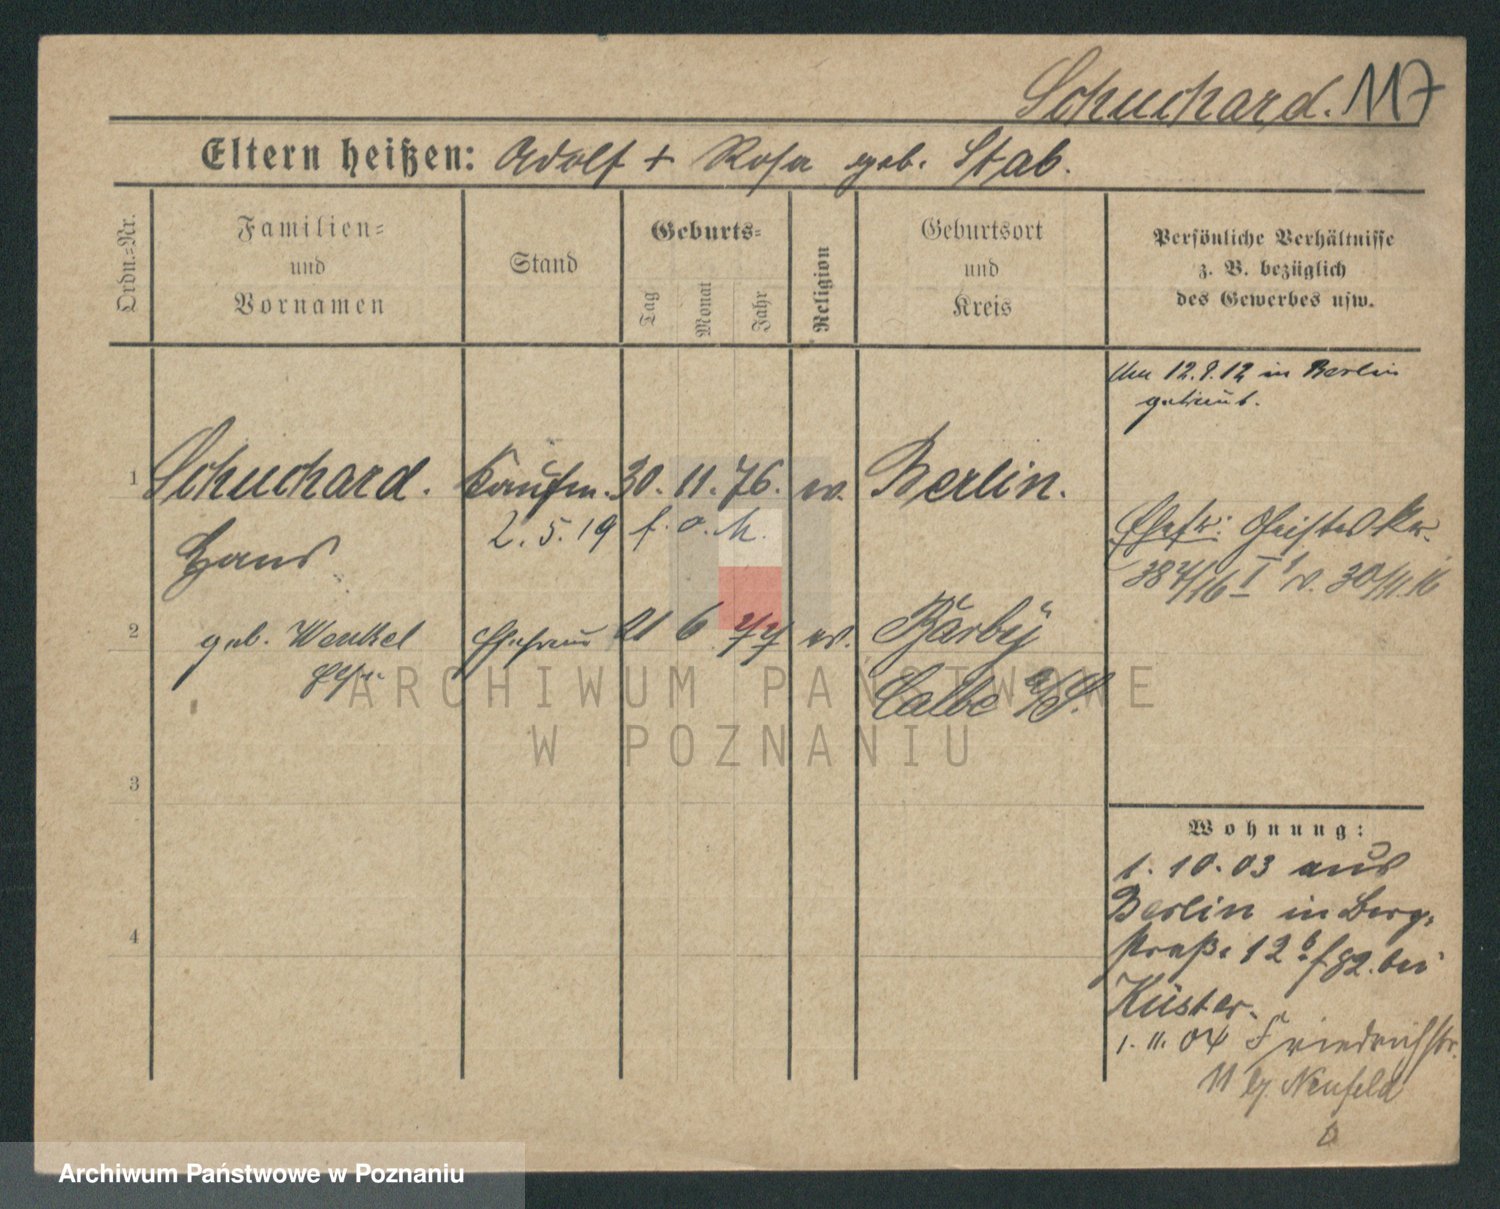 Schuchard. 117
Eltern heißen: Adolf + Rosa geb. Stab.
Ordn.-Nr.
Familien-
und
Vornamen
Stand
Geburts-
Tag
Monat
Jahr
Religion
Geburtsort
und
Kreis
Persönliche Verhältnisse
z. B. bezüglich
des Gewerbes usw.
12.9.12 in Berlin
getraut.
1 Schuchard. Kaufm. 30. 11. 76. ev. Berlin.
Hans
2.5.19 f. o. M.
2 geb. Wenkel Ehefrau 21 6 77 ev. Barby
Calbe a/S.
Ehefr:
v. 30/11.16
3
4
Wohnung:
1. 10. 03 aus
Berlin in Berg-
straße 12b bei
Küster.
1. 11. 04 Friedrichstr.
11 bj. Neufeld
ARCHIWUM PAŃSTWOWE
W POZNANIU
Archiwum Państwowe w Poznaniu